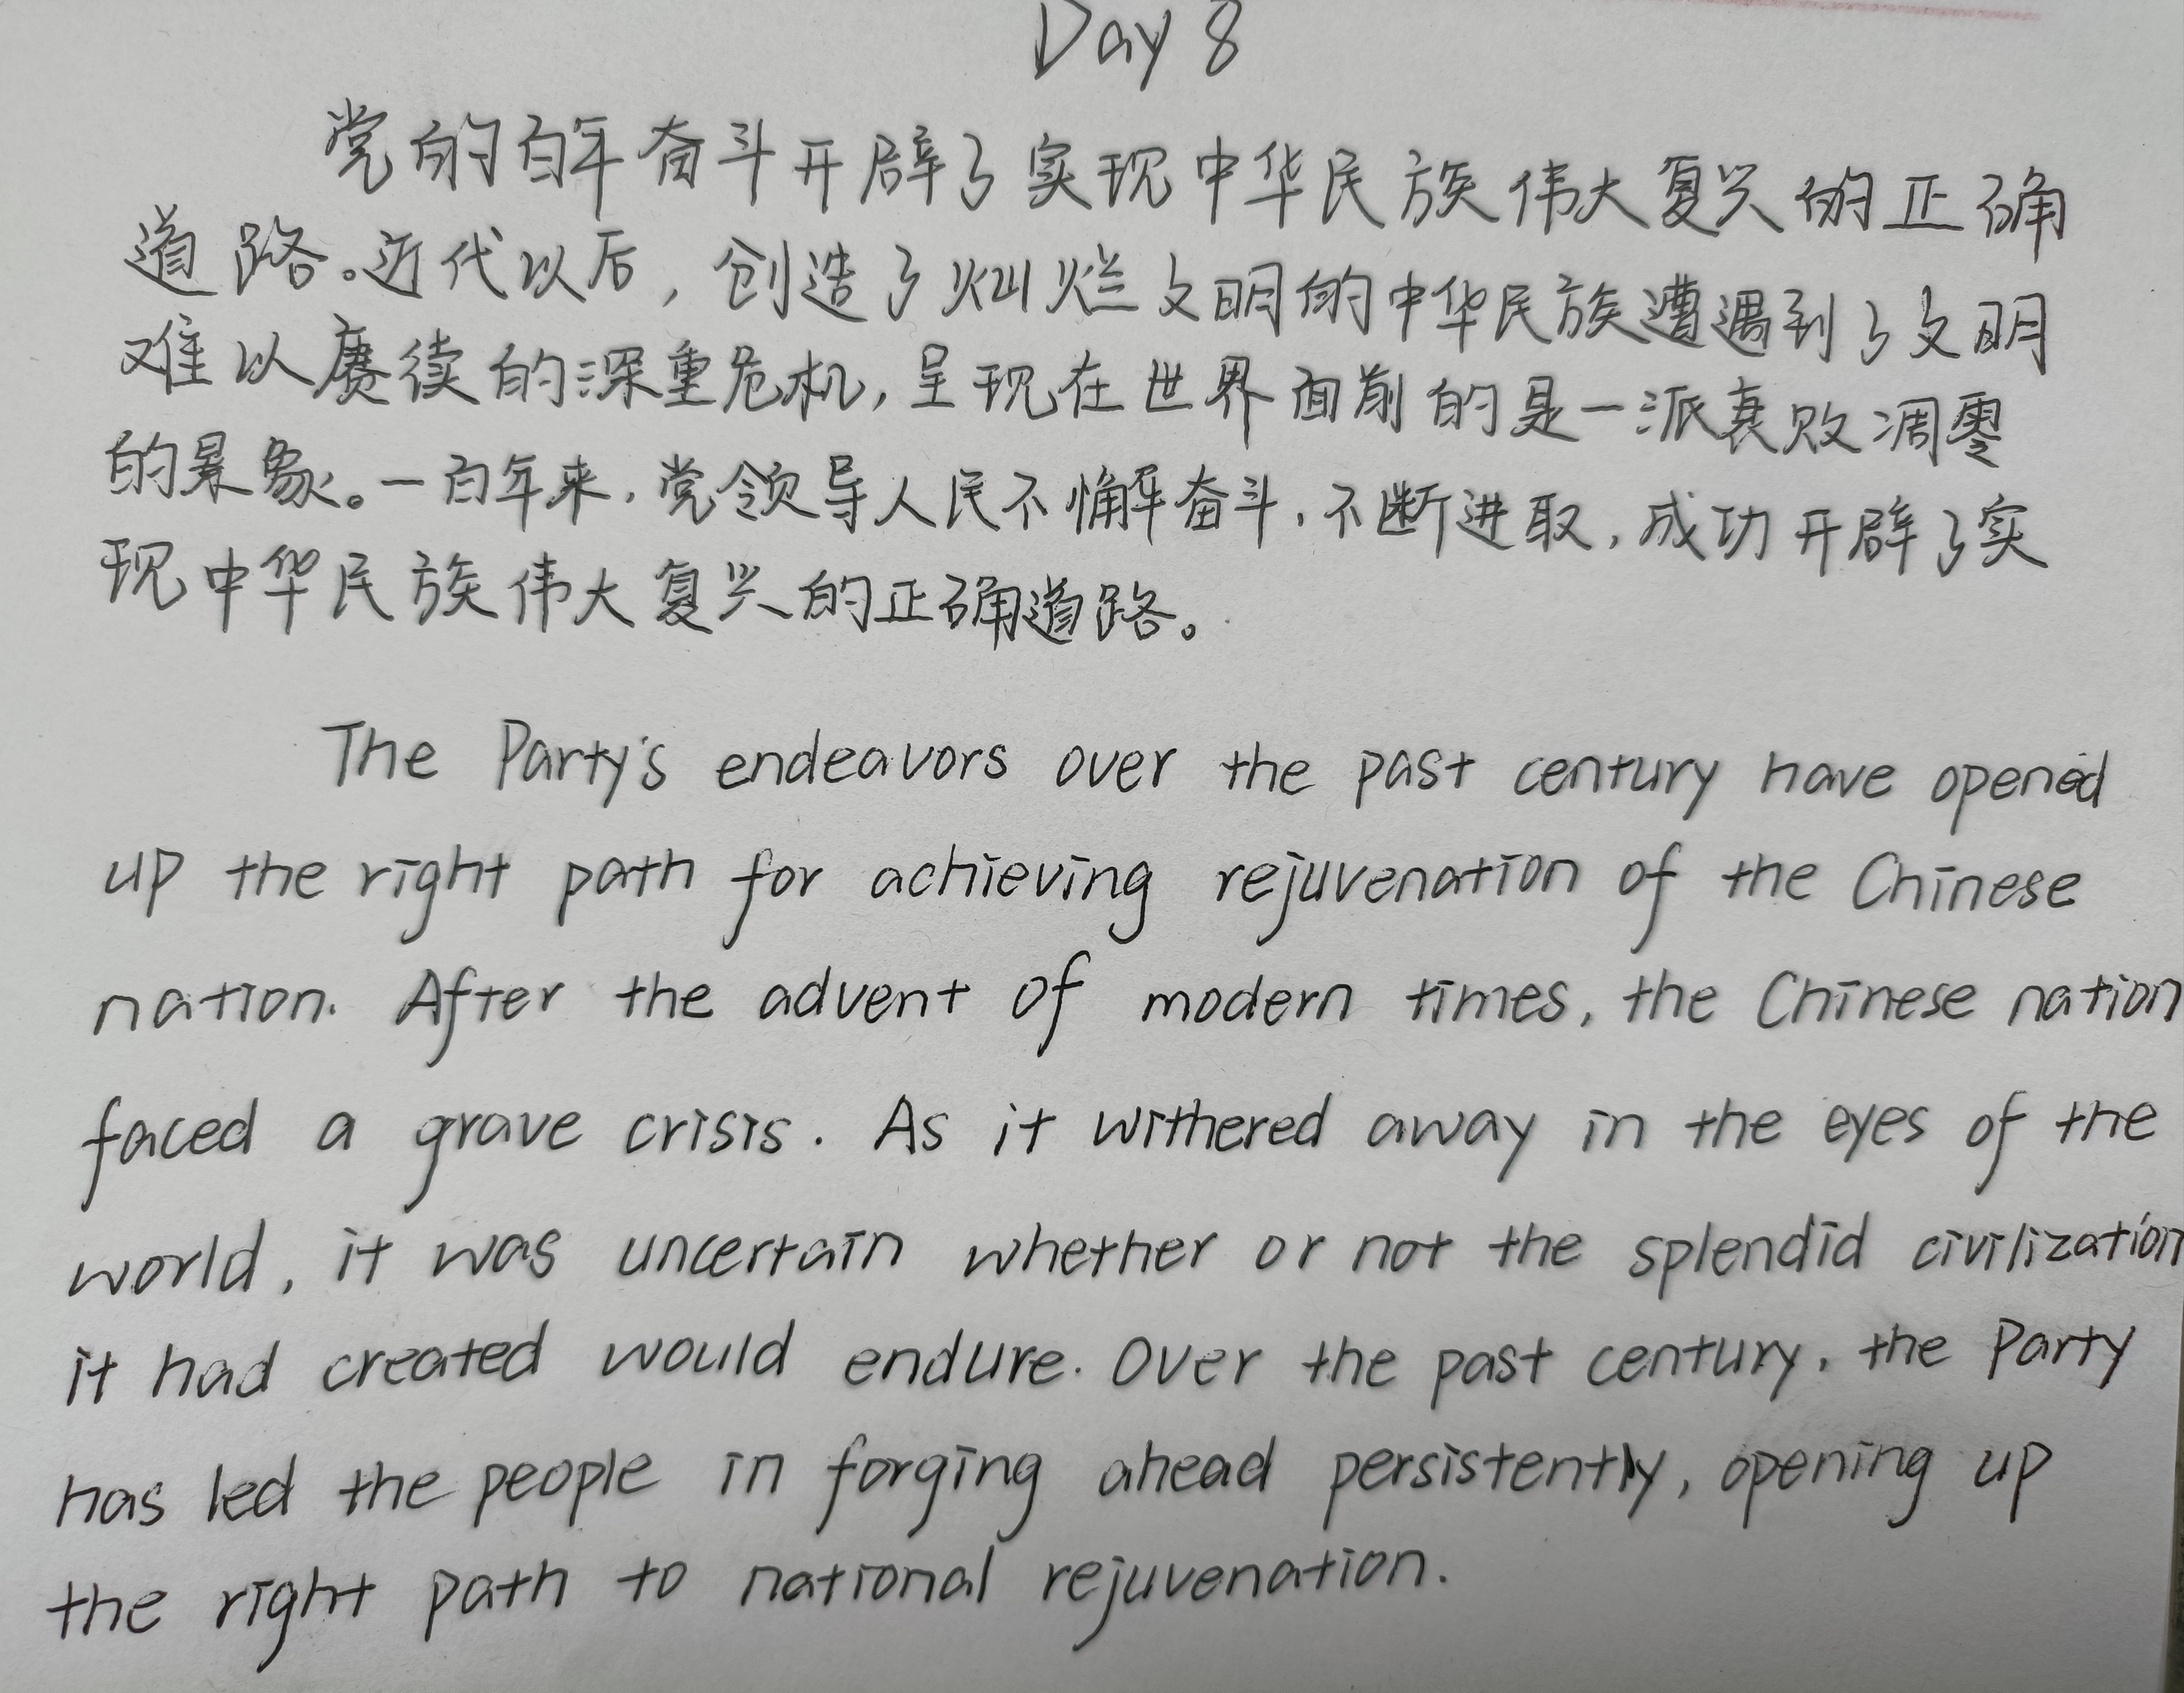 Day 8
党的百年奋斗开辟了实现中华民族伟大复兴的正确
道路。近代以后，创造了灿烂文明的中华民族遭遇到了文明
难以赓续的深重危机，呈现在世界面前的是一派衰败凋零
的景象。一百年来，党领导人民不懈奋斗，不断进取，成功开辟了实
现中华民族伟大复兴的正确道路。
The Party's endeavors over the past century have opened
up the right path for achieving rejuvenation of the Chinese
nation. After the advent of modern times, the Chinese nation
faced a grave crisis. As it withered away in the eyes of the
world, it was uncertain whether or not the splendid civilization
it had created would endure. Over the past century, the Party
has led the people in forging ahead persistently, opening up
the right path to national rejuvenation.